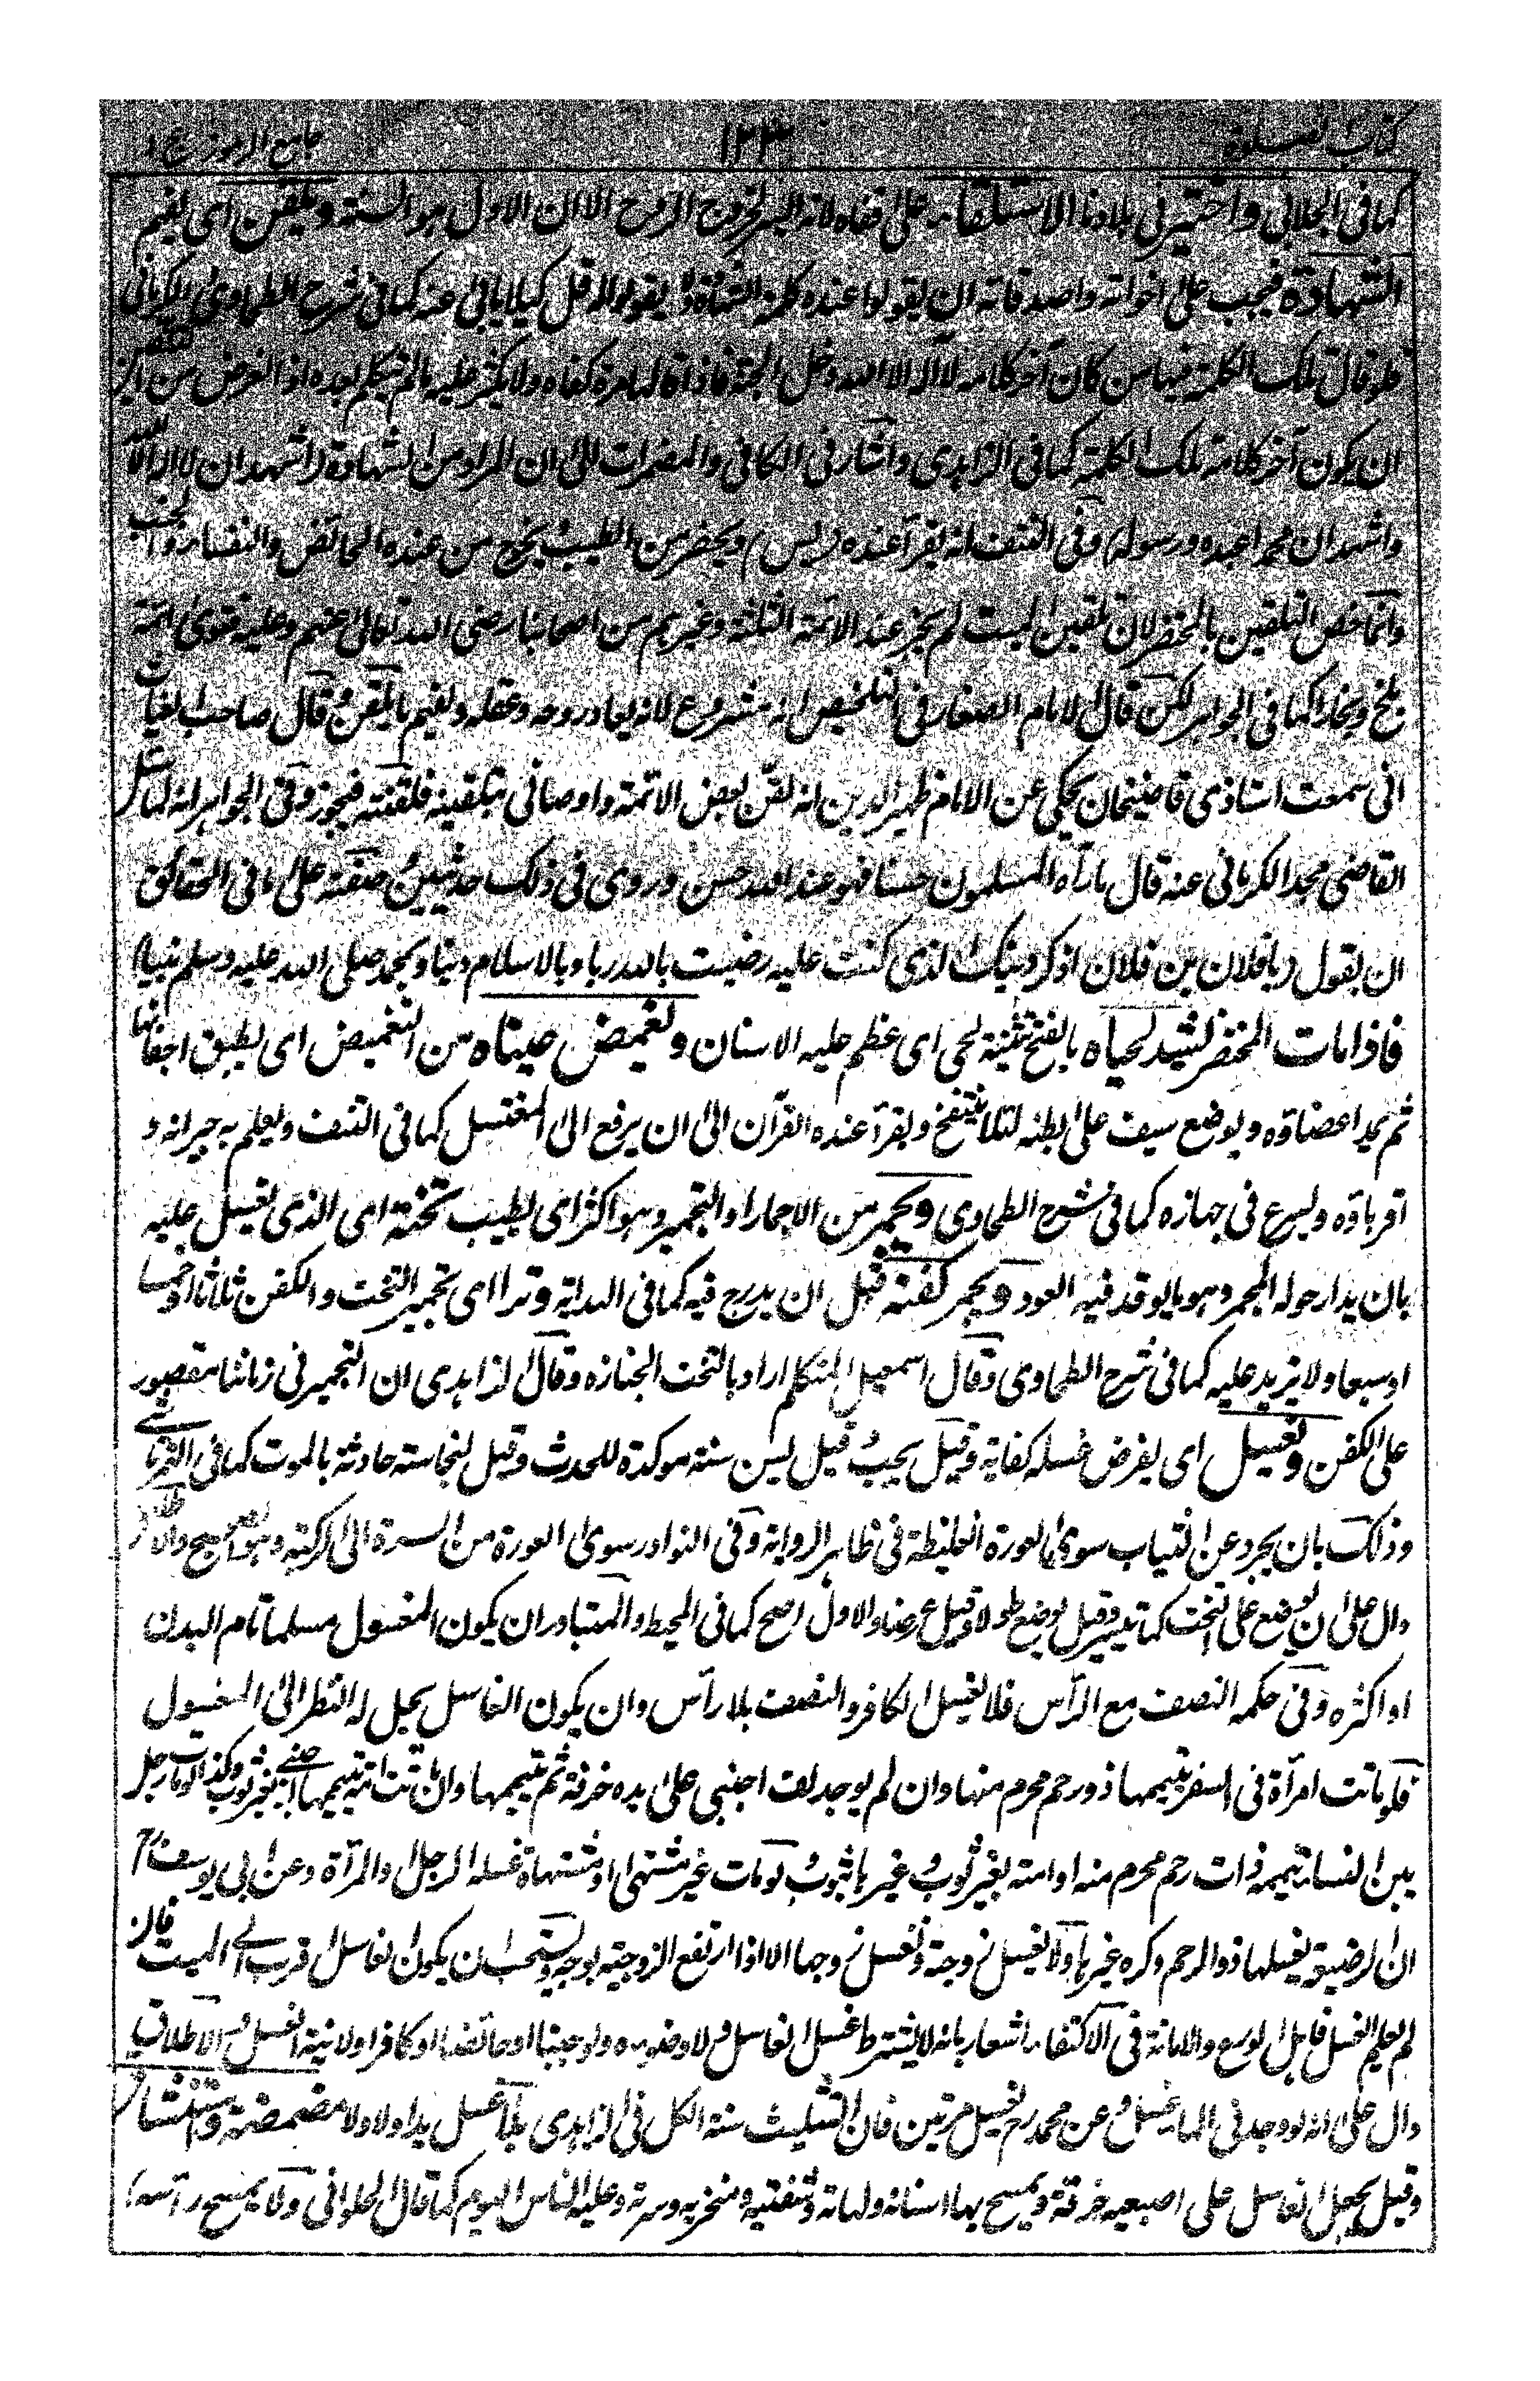 كتاب الصلوة ١٢٣ جامع الرموز ج ١
كما فى الجلابى واختير فى بلادنا الاستلقاء على قفاه لانه ايسر لخروج الروح الا ان الاول هو السنة ويلقن اى يفهم
الشهادة فيجب على اخوانه واصدقائه ان يقولوا عنده كلمة الشهادة ولا يقولوا له قل كيلا يابى عنه كما فى شرح الطحاوى الكرمانى
فلو قال تلك الكلمة فبها من كان آخر كلامه لا اله الا الله دخل الجنة فاذا قالها مرة كفاه ولا يكثر عليه ما لم يتكلم بعده اذ الغرض من التلقين
ان يكون آخر كلامه تلك الكلمة كما فى الزاهدى واشار فى الكافى والمضمرات الى ان المراد من الشهادة (اشهد ان لا اله الا الله
واشهد ان محمدا عبده ورسوله) وفى النتف انه يقرأ عنده (يس) ويحضر من الطيب ويخرج من عنده الحائض والنفساء والجنب
وانما خص التلقين بالمحتضر لان تلقين الميت لم يجز عند الائمة الثلثة وغيرهم من اصحابنا رضى الله تعالى عنهم وعليه فتوى ائمة
بلخ وبخارا كما فى الجواهر لكن قال الامام الصفار فى التلخيص انه مشروع لانه يعاد روحه وعقله ويفهم ما يلقن وقال صاحب الغياث
انى سمعت استاذى قاضيخان يحكى عن الامام ظهير الدين انه لقن بعض الائمة واوصانى بتلقينه فلقنته فيجوز وفى الجواهر انه لما سئل
القاضى مجد الكرمانى عنه قال ما رآه المسلمون حسنا فهو عند الله حسن وروى فى ذلك حديثين وصفته على ما فى الحقائق
ان يقول (يا فلان بن فلان اذكر دينك الذى كنت عليه رضيت بالله ربا وبالاسلام دينا وبمحمد صلى الله عليه وسلم نبيا)
فاذا مات المحتضر يشد لحياه بالفتح تثنية لحى اى عظم عليه الاسنان ويغمض عيناه من التغميض اى يطبق اجفانها
ثم يمد اعضاؤه ويوضع سيف على بطنه لئلا ينتفخ ويقرأ عنده القرآن الى ان يرفع الى المغتسل كما فى النتف ويعلم به جيرانه و
اقرباؤه ويسرع فى جهازه كما فى شرح الطحاوى ويجمر من الاجمار او التجمير وهو اكثر اى يطيب تخته اى الذى يغسل عليه
بان يدار حوله المجمر وهو ما يوقد فيه العود ويجمر كفنه قبل ان يدرج فيه كما فى الهداية وترا اى تجمير التخت والكفن ثلاثا او خمسا
او سبعا ولا يزيد عليه كما فى شرح الطحاوى وقال اسمعيل المتكلم اراد بالتخت الجنازة وقال الزاهدى ان التجمير فى زماننا مقصور
على الكفن ويغسل اى يفرض غسله كفاية وقيل يجب وقيل يسن سنة موكدة للحدث وقيل لنجاسة حادثة بالموت كما فى التمرتاشى
وذلك بان يجرد عن الثياب سوى العورة الغليظة فى ظاهر الرواية وفى النوادر سوى العورة من السرة الى الركبة وهو الصحيح والاطلاق
دال على ان يوضع على التخت كما تيسر وقيل يوضع طولا وقيل عرضا والاول اصح كما فى المحيط والمتبادر ان يكون المغسول مسلما تام البدن
او اكثره وفى حكمه النصف مع الرأس فلا يغسل الكافر والنصف بلا رأس وان يكون الغاسل يحل له النظر الى المغسول
فلو ماتت امرأة فى السفر يتيمها ذو رحم محرم منها وان لم يوجد لف اجنبى على يده خرقة ثم يتيمها وان ماتت امة يتيمها اجنبى بغير ثوب وكذا لو مات رجل
بين النساء تيممه ذات رحم محرم منه او امة بغير ثوب وغيرها بثوب ولو مات غير مشتهى او مشتهاة غسله الرجل والمرأة وعن ابى يوسف رح
ان الرضيعة يغسلها ذو الرحم وكره غيرها ولا يغسل زوجة وتغسل زوجها الا اذا ارتفع الزوجية بوجه ويستحب ان يكون الغاسل اقرب الى الميت فان
لم يعلم الغسل فاهل الورع والامانة فى الاكتفاء اشعار بانه لا يشترط غسل الغاسل ولا وضوءه ولو جنبا او حائضا او كافرا ولا نية الغسل والاطلاق
دال على انه لو وجد فى الماء يغسل وعن محمد رح يغسل مرتين فان التثليث سنة الكل فى الزاهدى بلا غسل يد اولا ولا مضمضة واستنشاق
وقيل يجعل الغاسل على اصبعيه خرقة ويمسح بها اسنانه ولهاته وشفتيه ومنخريه وسرته وعليه الناس اليوم كما قال الحلوانى ولا يمسح رأسه)